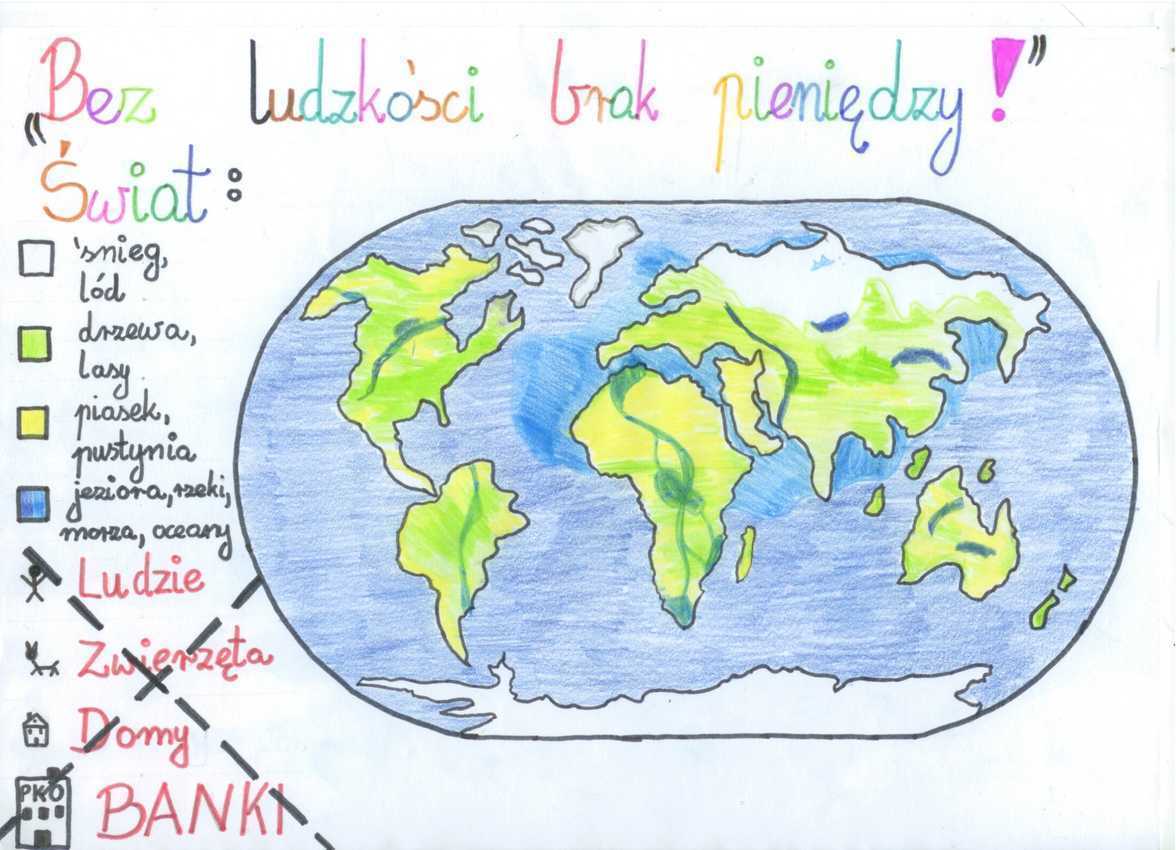 Bez ludzkości brak pieniędzy!"
"Świat:
śnieg,
lód
drzewa,
lasy
piasek,
pustynia
jeziora, rzeki,
morza, oceany
Ludzie
Zwierzęta
Domy
PKO
BANKI